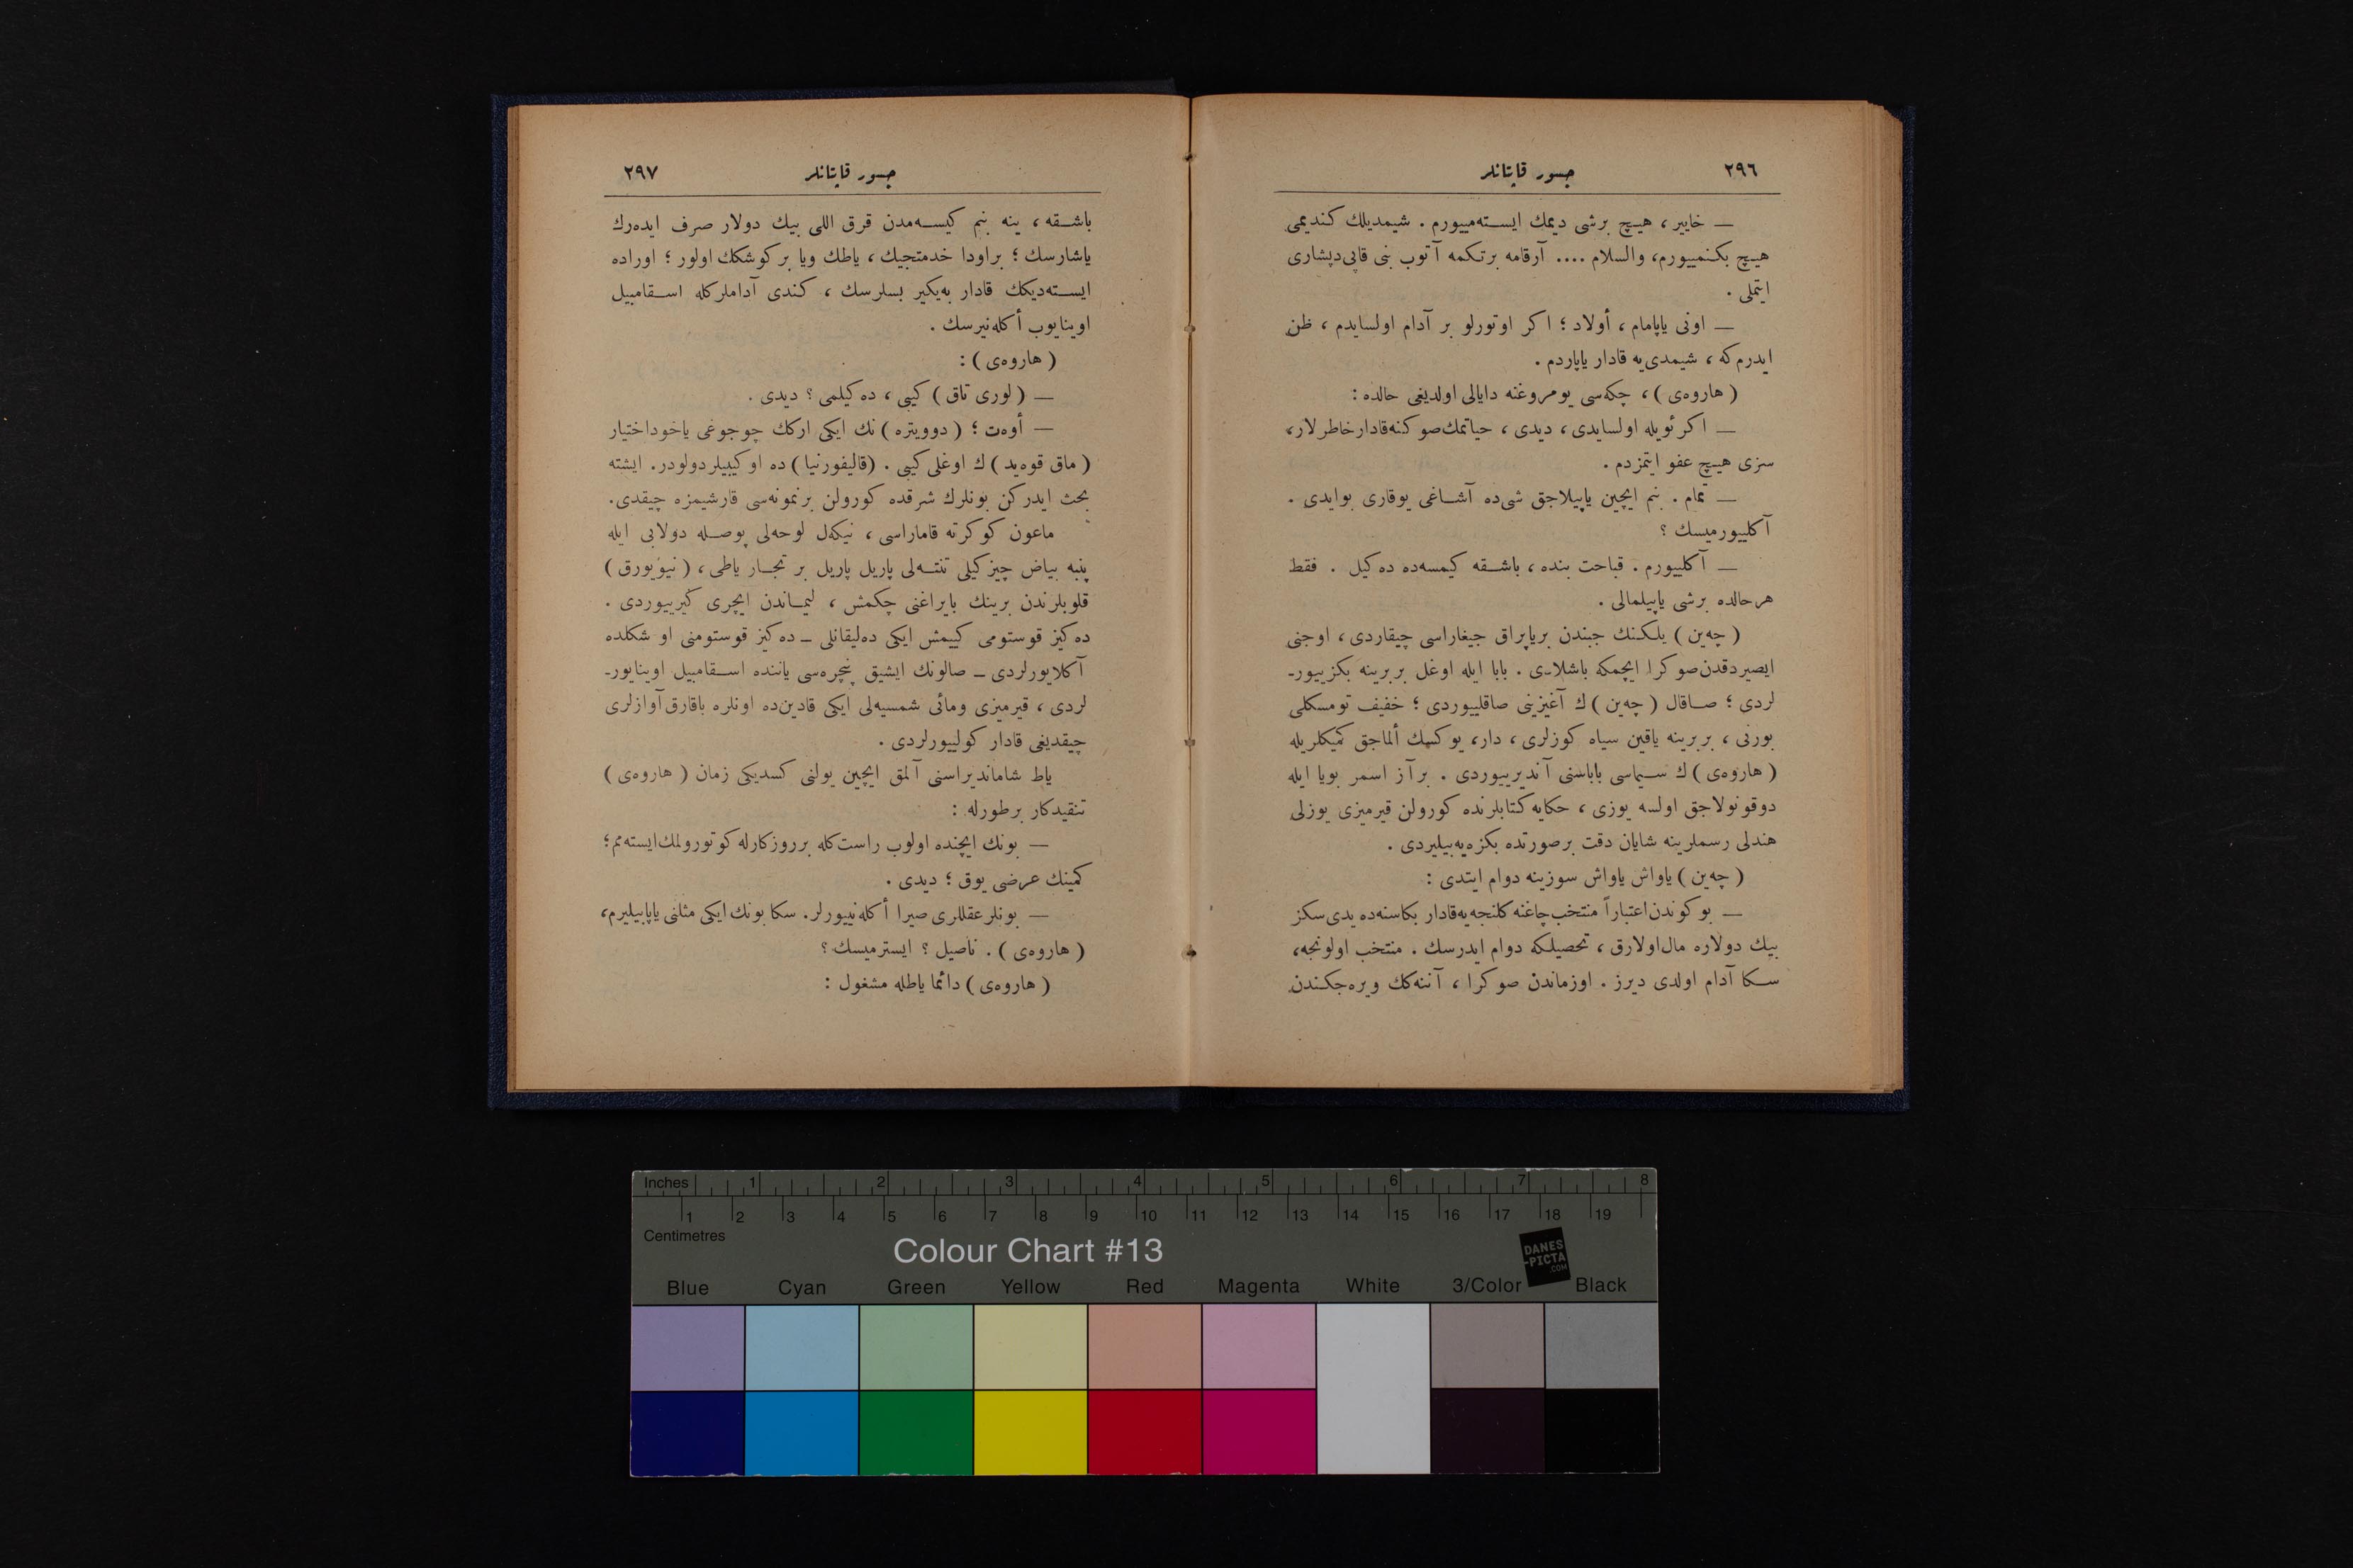 ٢٩٦
جسور قاپتانلر
— خايير ، هيچ برشی ديمك ايسته‌مييورم . شيمديلك كنديمی
هيچ بكنمييورم، والسلام .... آرقامه برتكمه آتوب بنی قاپی‌ديشاری
ايتملی .
— اونی ياپامام ، أولاد ؛ اكر اوتورلو بر آدام اولسايدم ، ظن
ايدرم‌كه ، شيمدی‌يه قادار ياپاردم .
( هاروه‌ی ) ، چكه‌سی يومروغنه دايالی اولديغی حالده :
— اكر ئويله اولسايدی ، ديدی ، حياتمك‌صوكنه‌قادار خاطرلار،
سزی هيچ عفو ايتمزدم .
— تمام . بنم ايچين ياپيلاجق شی‌ده آشاغی يوقاری بوايدی .
آكلييورميسك ؟
— آكلييورم . قباحت بنده ، باشقه كيمسه‌ده ده‌كيل . فقط
هرحالده برشی ياپيلمالی .
( چه‌ين ) يلكنك جبندن برياپراق جيغاراسی چيقاردی ، اوجنی
ايصيردقدن‌صوكرا ايچمكه باشلادی . بابا ايله اوغل بربرينه بكزييور-
لردی ؛ صاقال ( چه‌ين ) ك آغيزينی صاقلييوردی ؛ خفيف تومسكلی
بورنی ، بربرينه ياقين سياه كوزلری ، دار، يوكسك ألماجق كميكلريله
( هاروه‌ی ) ك سيماسی باباسنی آنديرييوردی . برآز اسمر بويا ايله
دوقونولاجق اولسه يوزی ، حكايه كتابلرنده كورولن قيرميزی يوزلی
هندلی رسملرينه شايان دقت برصورتده بكزه‌يه‌بيليردی .
( چه‌ين ) ياواش ياواش سوزينه دوام ايتدی :
— بوكوندن‌اعتباراً منتخب‌چاغنه كلنجه‌يه‌قادار بكاسنه‌ده يدی‌سكز
بيك دولاره مال‌اولارق ، تحصيلكه دوام ايدرسك . منتخب اولونجه،
سكا آدام اولدی ديرز . اوزماندن صوكرا ، آننه‌كك ويره‌جكندن
جسور قاپتانلر
٢٩٧
باشقه ، ينه بنم كيسه‌مدن قرق اللی بيك دولار صرف ايده‌رك
ياشارسك ؛ براودا خدمتجيك ، ياطك ويا بر كوشكك اولور ؛ اوراده
ايسته‌ديكك قادار به‌يكير بسلرسك ، كندی آداملركله اسقامبيل
اوينايوب أكله‌نيرسك .
( هاروه‌ی ) :
— ( لوری تاق ) كيبی ، ده‌كيلمی ؟ ديدی .
— أوه‌ت ؛ ( دوويتره ) نك ايكی اركك چوجوغی ياخود‌اختيار
( ماق قوه‌يد ) ك اوغلی كيبی . (قاليفورنيا) ده اوكيبيلردولودر. ايشته
بحث ايدركن بونلرك شرقده كورولن برنمونه‌سی قارشيمزه چيقدی.
ماعون كوكرته قاماراسی ، نيكه‌ل لوحه‌لی پوصله دولابی ايله
پنبه بياض چيزكيلی تنته‌لی پاريل پاريل بر تجار ياطی ، ( نيويورق )
قلوبلرندن برينك بايراغنی چكمش ، ليماندن ايچری كيرييوردی .
ده‌كيز قوستومی كييمش ايكی ده‌ليقانلی — ده‌كيز قوستومنی او شكلده
آكلايورلردی — صالونك ايشيق پنجره‌سی ياننده اسقامبيل اوينايور-
لردی ، قيرميزی ومائی شمسيه‌لی ايكی قادين‌ده اونلره باقارق‌آوازلری
چيقديغی قادار كولييورلردی .
ياط شامانديراسنی آلمق ايچين يولنی كسديكی زمان ( هاروه‌ی )
تنقيدكار برطورله :
— بونك ايچنده اولوب راست‌كله برروزكارله كوتورولمك‌ايسته‌مم؛
كمينك عرضی يوق ؛ ديدی .
— بونلر‌عقللری صيرا أكله‌نييورلر. سكا بونك ايكی مثلنی ياپابيليرم،
( هاروه‌ی ) . ناصيل ؟ ايسترميسك ؟
( هاروه‌ی ) دائما ياطله مشغول :
Inches 1 2 3 4 5 6 7 8
1 2 3 4 5 6 7 8 9 10 11 12 13 14 15 16 17 18 19
Centimetres
Colour Chart #13
DANES
-PICTA
.COM
Blue Cyan Green Yellow Red Magenta White 3/Color Black